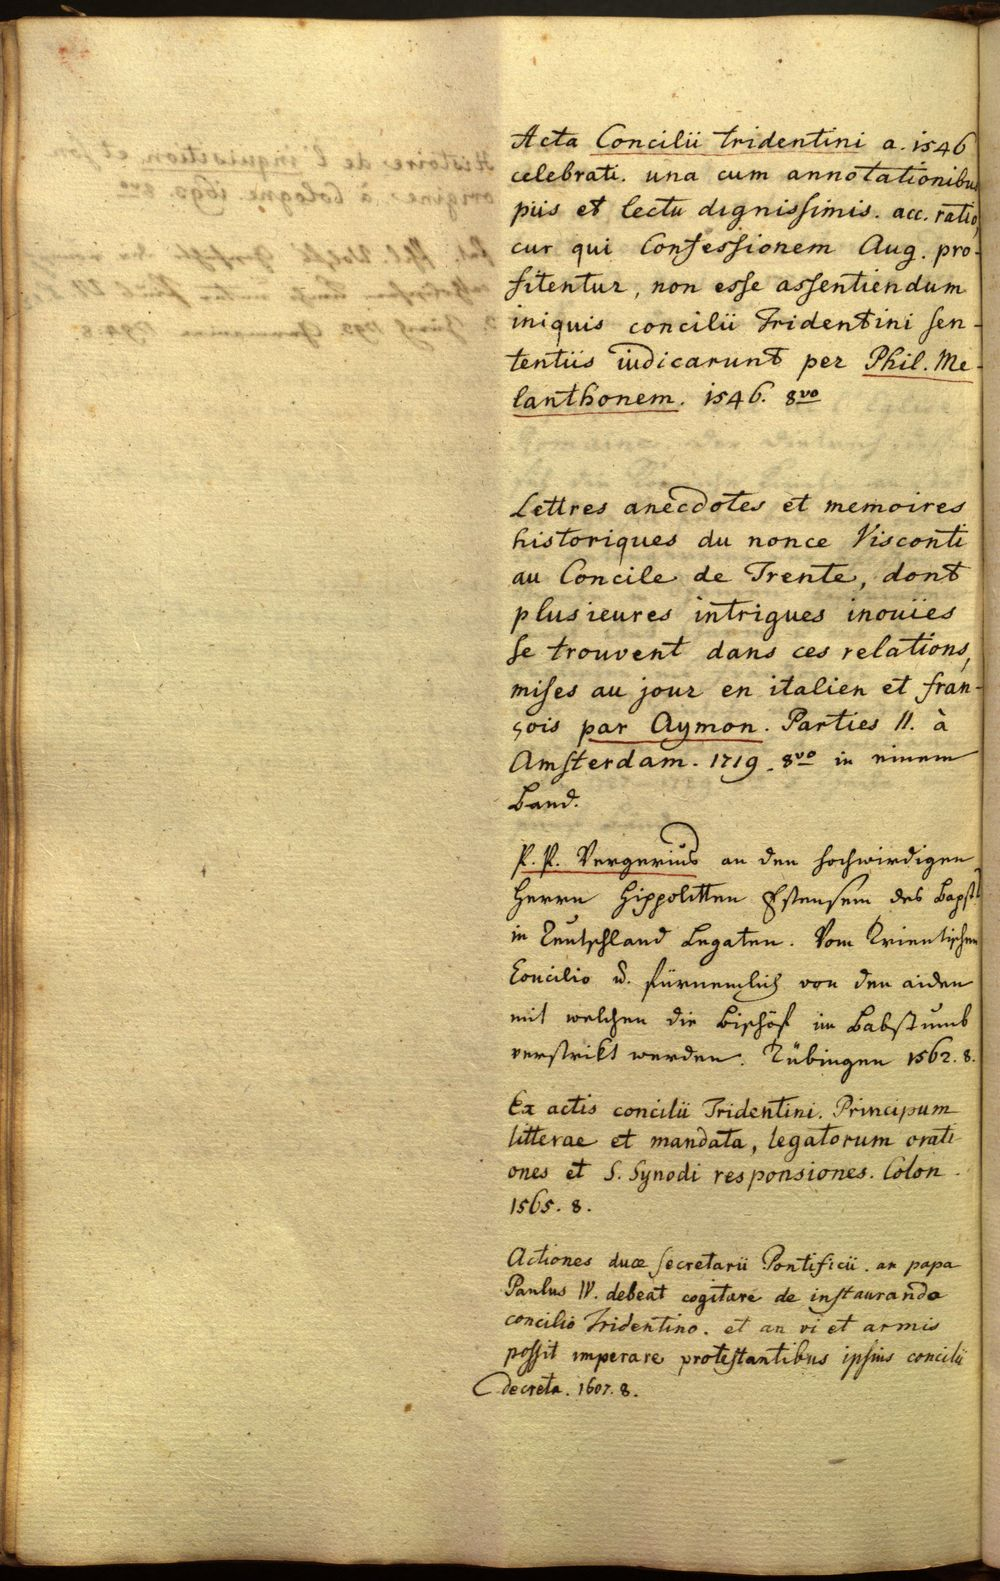 Acta Concilii tridentini a. 1546
celebrati. una cum annotationibus
piis et lectu dignissimis. acc. ratio,
cur qui Confessionem Aug. pro-
fitentur, non esse assentiendum
iniquis concilii Tridentini sen-
tentiis iudicarunt per Phil. Me-
lanthonem. 1546. 8vo
Lettres anecdotes et memoires
historiques du nonce Visconti
au Concile de Trente, dont
plusieures intrigues inouies
se trouvent dans ces relations,
mises au jour en italien et fran-
çois par Aymon. Parties II. à
Amsterdam. 1719. 8vo in einem
Band.
P. P. Vergerius an den hochwirdigen
Herrn Hippolitten Estensem des Bapsts
in Teutschland Legaten. Vom Trientischen
Concilio u. fürnemlich von den aiden
mit welchen die Bischöf im Babstumb
verstrikt werden. Tübingen 1562. 8.
Ex actis concilii Tridentini. Principum
litterae et mandata, legatorum orati
ones et S. Synodi responsiones. Colon.
1565. 8.
Actiones duæ secretarii Pontificii. an papa
Paulus IV. debeat cogitare de instaurando
concilio Tridentino. et an vi et armis
possit imperare protestantibus ipsius concilii
decreta. 1607. 8.